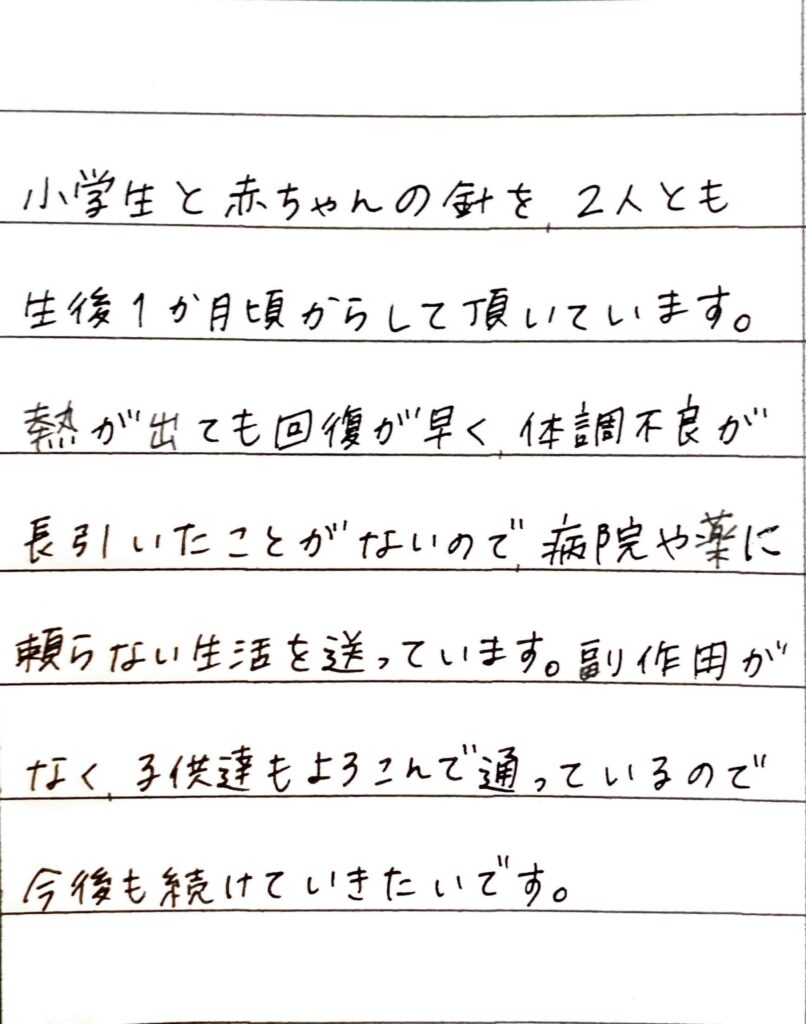 小学生と赤ちゃんの針を、2人とも
生後1か月頃からして頂いています。
熱が出ても回復が早く、体調不良が
長引いたことがないので、病院や薬に
頼らない生活を送っています。副作用が
なく、子供達もよろこんで通っているので
今後も続けていきたいです。